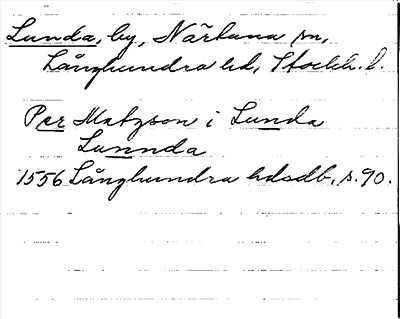 Lunda, by, Närtuna sn,
Långhundra hd, Stockh. l.
Per Matzson i Lunda
Lunnda
1556 Långhundra hdsdb, s. 90.